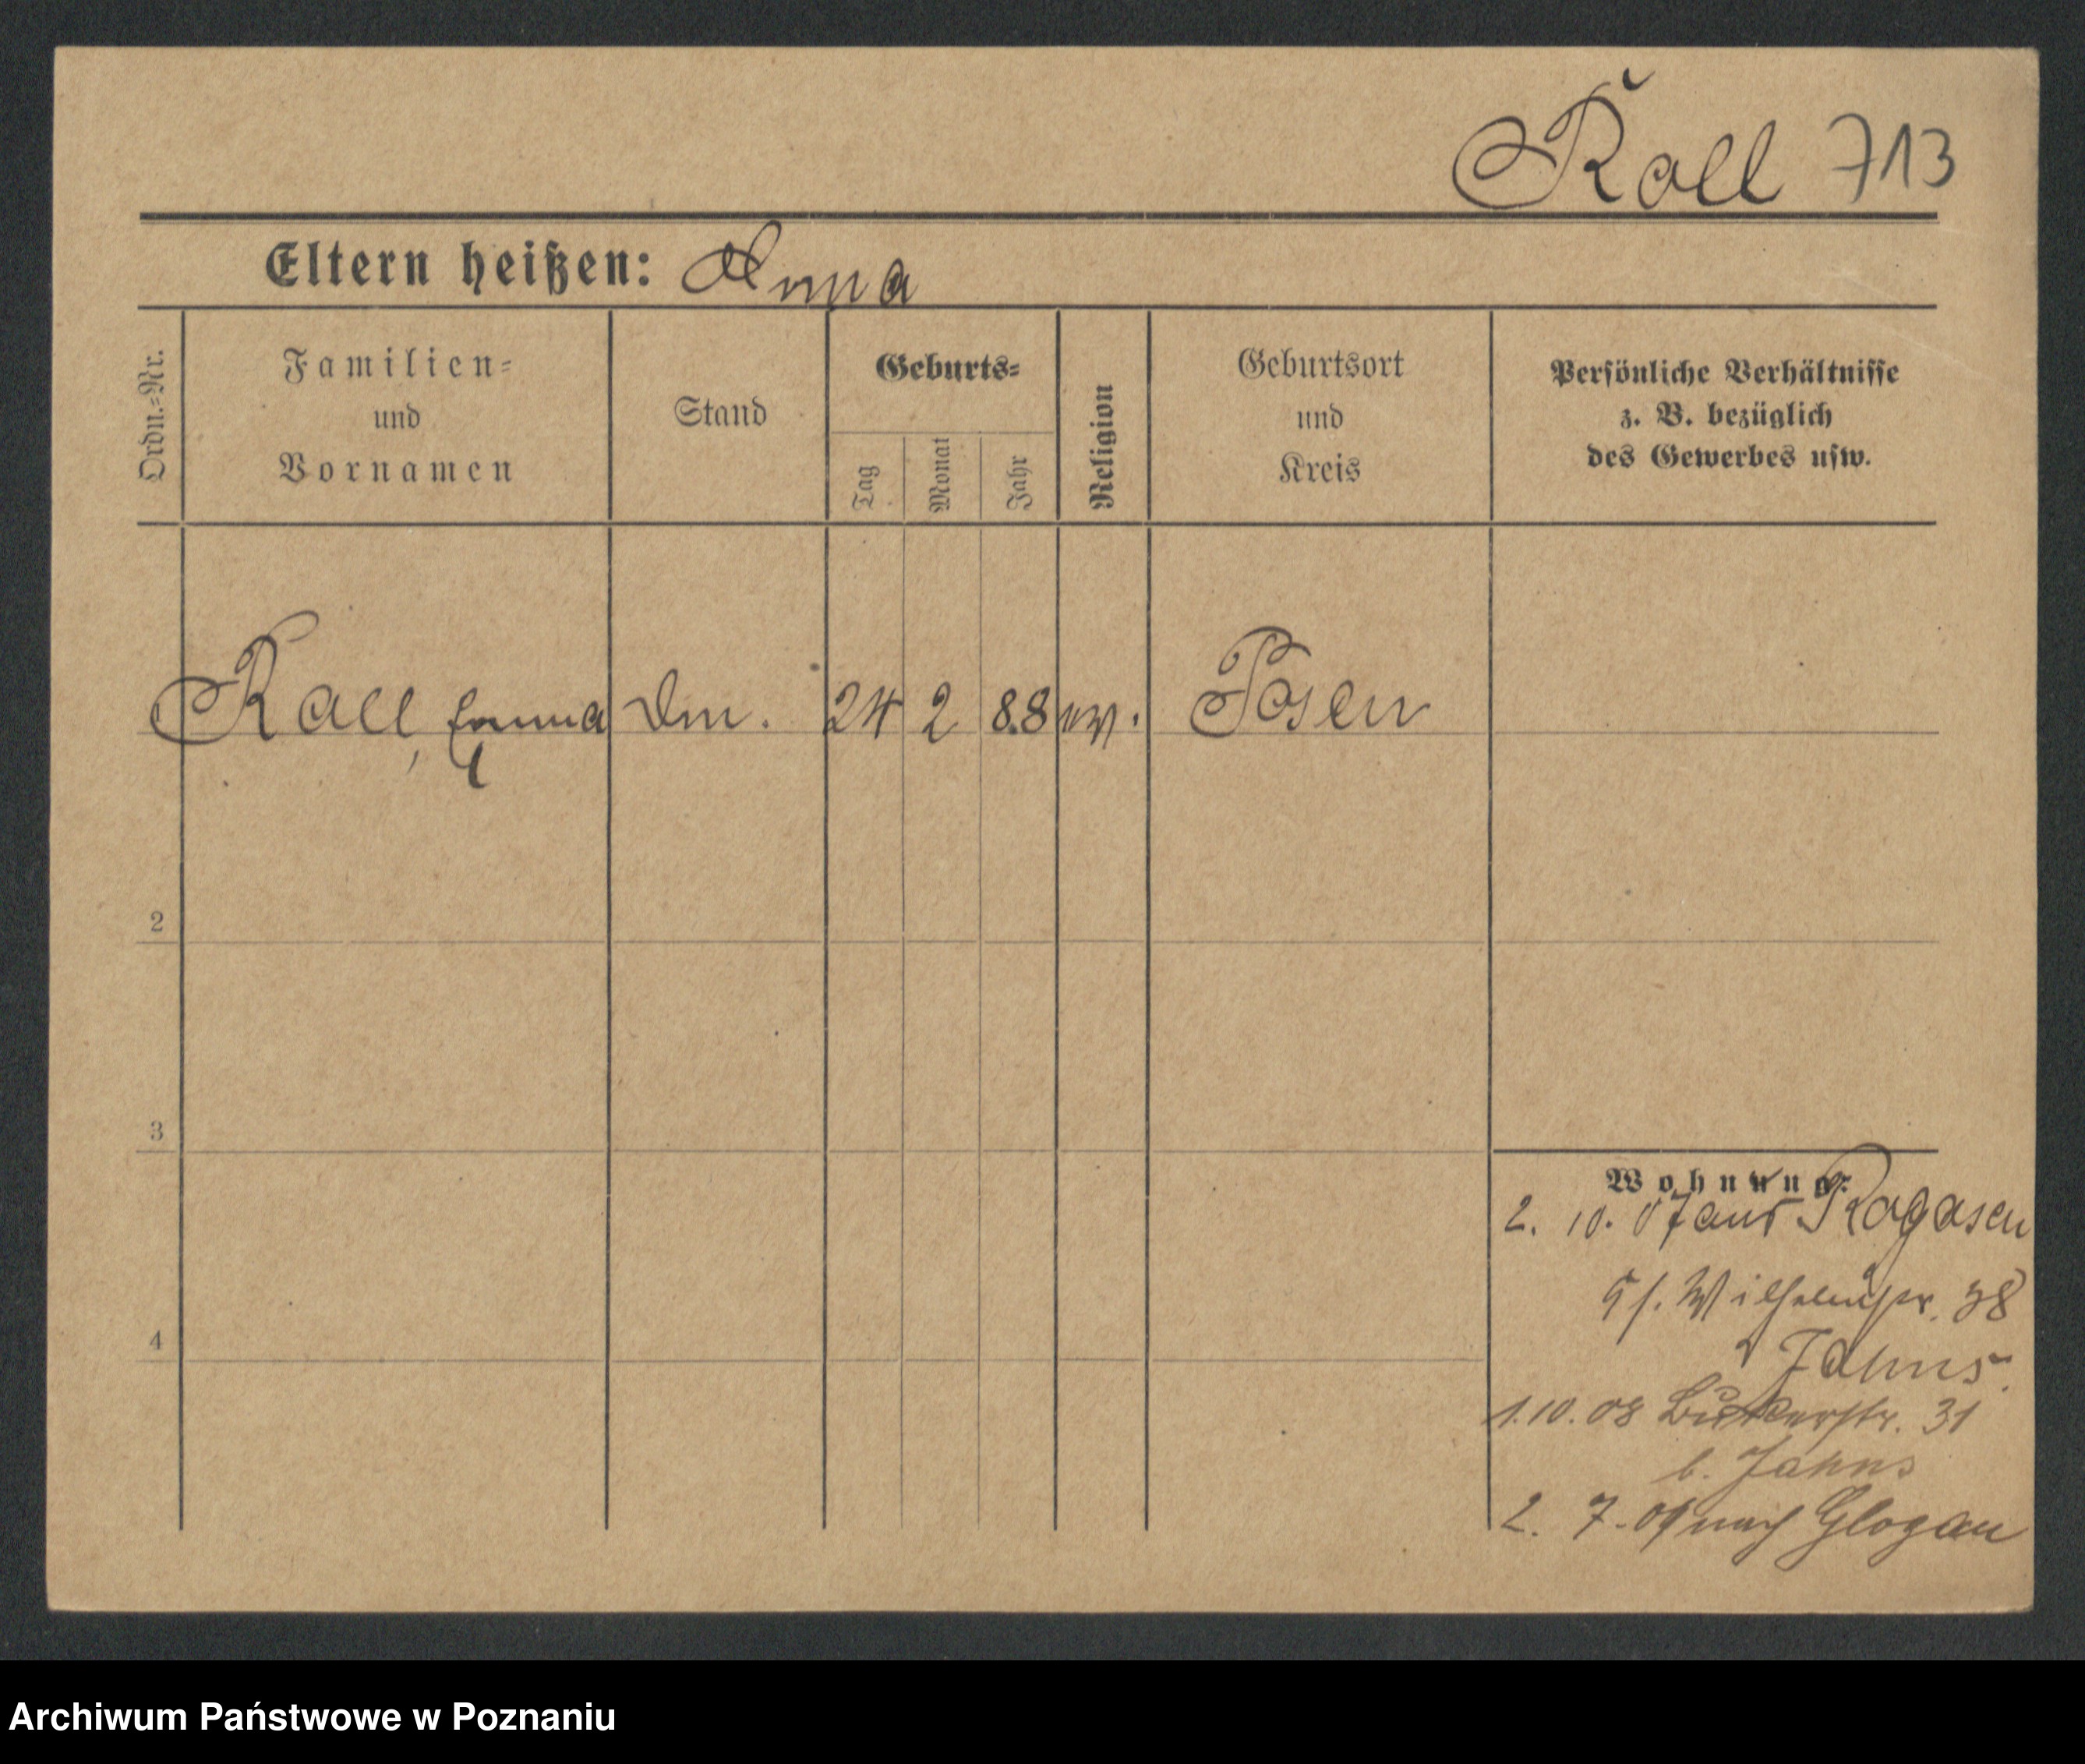 Rall 713
Eltern heißen: Anna
Ordn.-Nr.
Familien-
und
Vornamen
Stand
Geburts-
Tag
Monat
Jahr
Religion
Geburtsort
und
Kreis
Persönliche Verhältnisse
z. B. bezüglich
des Gewerbes usw.
Rall, Emma 24 2 88 ev. Posen
2
3
4
Wohnung:
2. 10. 07 aus Rogasen
38
Jahns
1.10.08 Bukerstr. 31
b. Jahns
2. 7. 09 nach Glogau
Archiwum Państwowe w Poznaniu